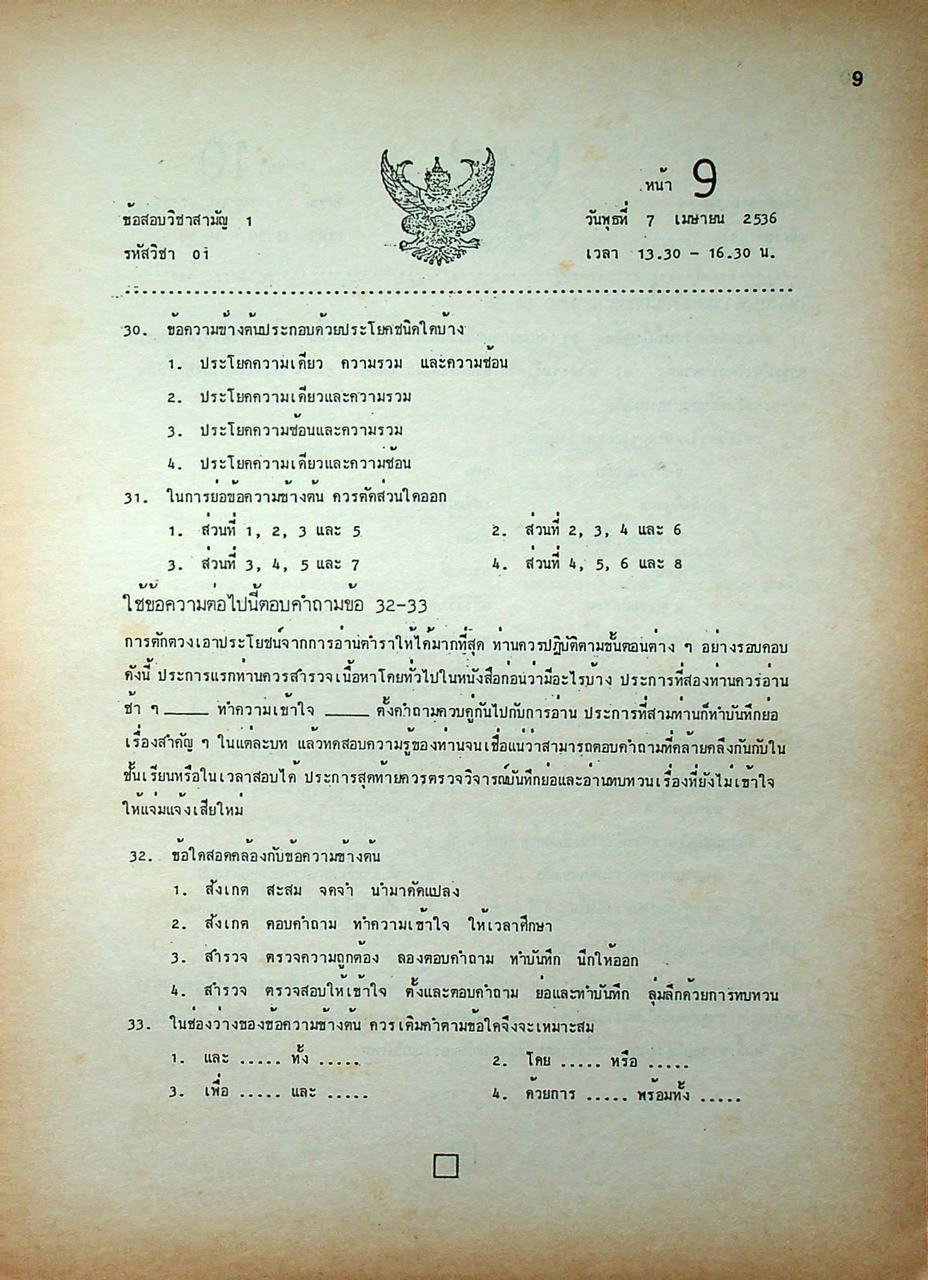 9
หน้า 9
ข้อสอบวิชาสามัญ 1
วันพุธที่ 7 เมษายน 2536
รหัสวิชา 01
เวลา 13.30 - 16.30 น.
30. ข้อความข้างต้นประกอบด้วยประโยคชนิดใดบ้าง
1. ประโยคความเดียว ความรวม และความซ้อน
2. ประโยคความเดียวและความรวม
3. ประโยคความซ้อนและความรวม
4. ประโยคความเดียวและความซ้อน
31. ในการย่อข้อความข้างต้น ควรตัดส่วนใดออก
1. ส่วนที่ 1, 2, 3 และ 5 2. ส่วนที่ 2, 3, 4 และ 6
3. ส่วนที่ 3, 4, 5 และ 7 4. ส่วนที่ 4, 5, 6 และ 8
ใช้ข้อความต่อไปนี้ตอบคำถามข้อ 32-33
การตักตวงเอาประโยชน์จากการอ่านตำราให้ได้มากที่สุด ท่านควรปฏิบัติตามขั้นตอนต่าง ๆ อย่างรอบคอบ
ดังนี้ ประการแรกท่านควรสำรวจเนื้อหาโดยทั่วไปในหนังสือก่อนว่ามีอะไรบ้าง ประการที่สองท่านควรอ่าน
ช้า ๆ _____ ทำความเข้าใจ _____ ตั้งคำถามควบคู่กันไปกับการอ่าน ประการที่สามท่านก็ทำบันทึกย่อ
เรื่องสำคัญ ๆ ในแต่ละบท แล้วทดสอบความรู้ของท่านจนเชื่อแน่ว่าสามารถตอบคำถามที่คล้ายคลึงกันกับใน
ชั้นเรียนหรือในเวลาสอบได้ ประการสุดท้ายควรตรวจวิจารณ์บันทึกย่อและอ่านทบทวนเรื่องที่ยังไม่เข้าใจ
ให้แจ่มแจ้งเสียใหม่
32. ข้อใดสอดคล้องกับข้อความข้างต้น
1. สังเกต สะสม จดจำ นำมาดัดแปลง
2. สังเกต ตอบคำถาม ทำความเข้าใจ ให้เวลาศึกษา
3. สำรวจ ตรวจความถูกต้อง ลองตอบคำถาม ทำบันทึก นึกให้ออก
4. สำรวจ ตรวจสอบให้เข้าใจ ตั้งและตอบคำถาม ย่อและทำบันทึก ลุ่มลึกด้วยการทบทวน
33. ในช่องว่างของข้อความข้างต้น ควรเติมคำตามข้อใดจึงจะเหมาะสม
1. และ ..... ทั้ง ..... 2. โดย ..... หรือ .....
3. เพื่อ ..... และ ..... 4. ด้วยการ ..... พร้อมทั้ง .....